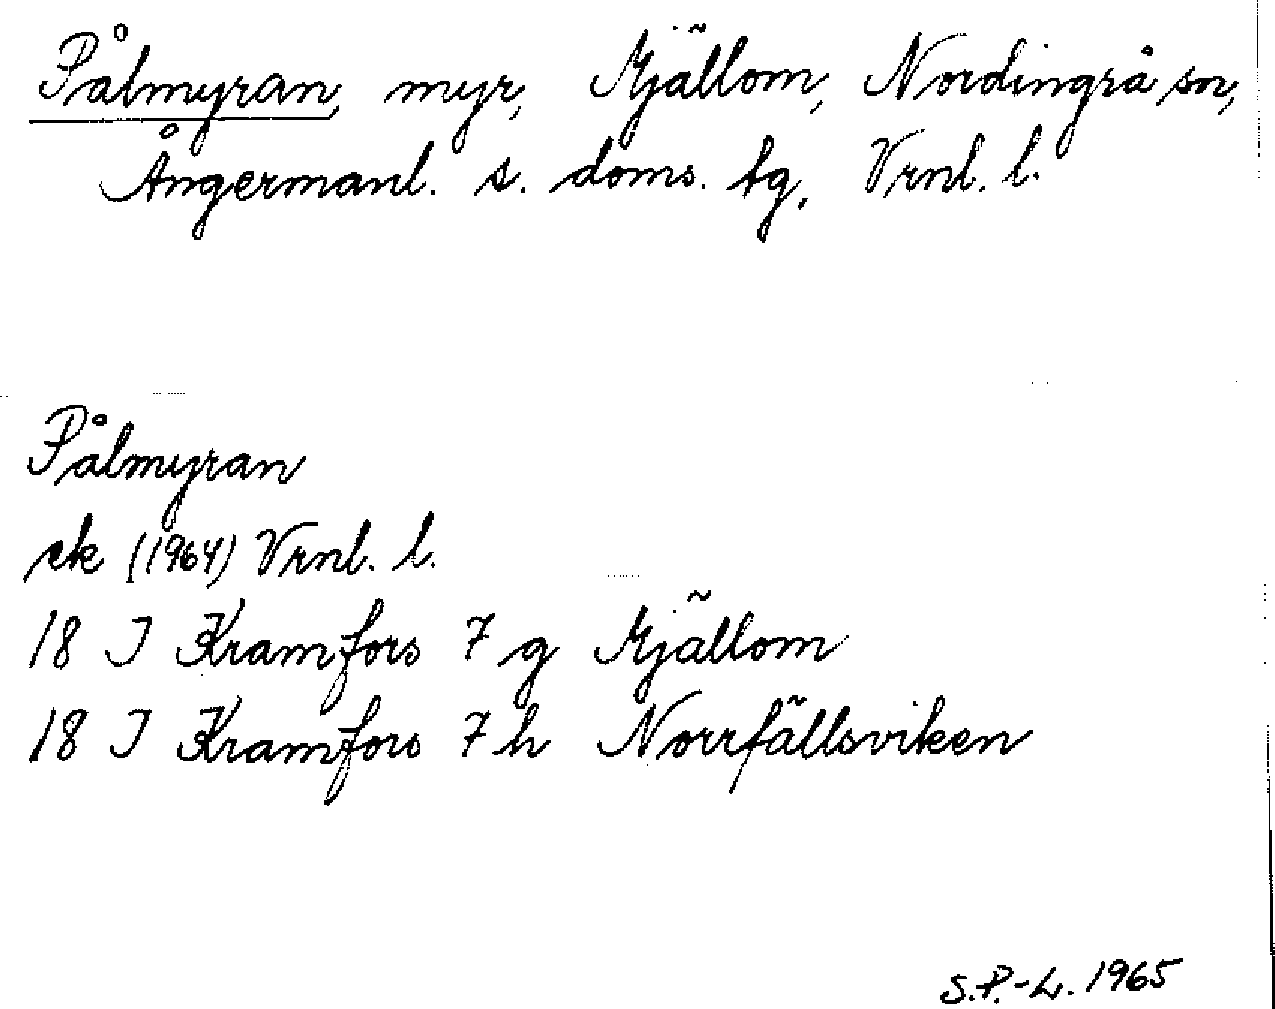 Pålmyran, myr, Mjällom, Nordingrå sn,
Ångermanl. s. doms. tg. Vrnl. l.
Pålmyran
ek (1964) Vrnl. l.
18 I Kramfors 7 g Mjällom
18 I Kramfors 7 h Norrfällsviken
S.P.-L. 1965